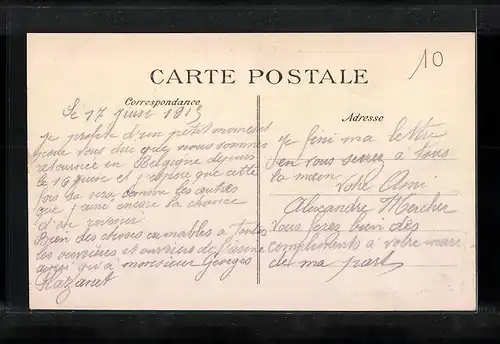 10
CARTE POSTALE
Correspondance
Adresse
Le 17 Juin 1915
je profite d'un petit moment
pour vous dire que nous sommes
retourné en Belgique depuis
le 16 Juin et j'espère que cette
fois sa sera comme les autres
que j'aurai encore la chance
d'en revenir
Bien des choses aimables a toutes
les ouvrières et ouvriers de
ainsi qu'à monsieur Georges
Hazanet
je fini ma lettre
en vous serrez à tous
la main
Votre Ami
Alexandre Mercher
Vous ferez bien dès
compliments à votre mari
de ma part